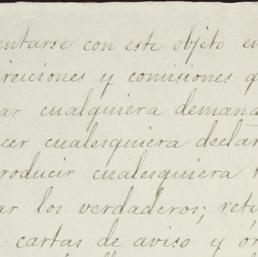 entarse con este objeto en
ireiciones y comisiones q
ar cualquiera demand
cer cualesquiera declar
roducir cualesquiera
ar los verdaderos; reti
cartas de aviso y ór